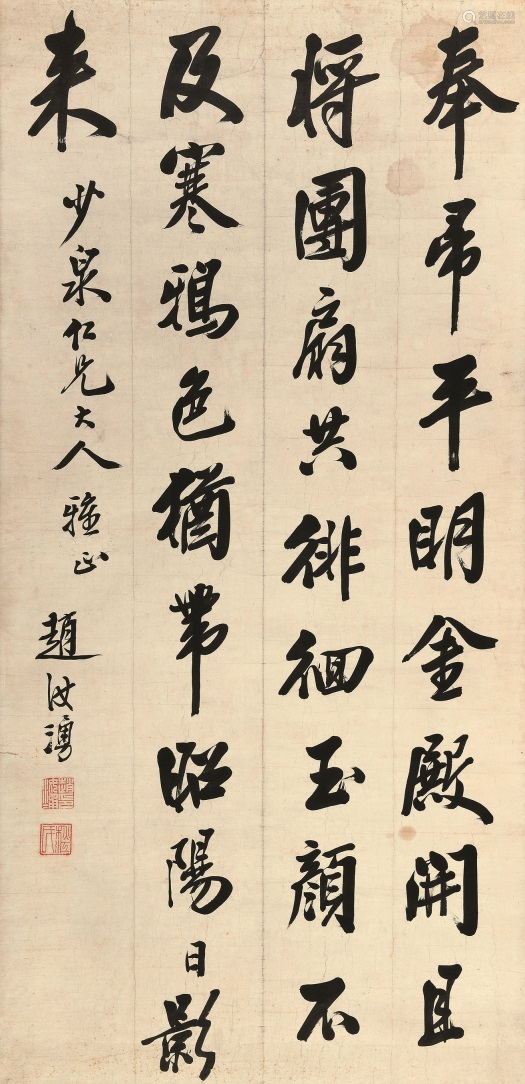 奉帚平明金殿開且
將團扇共徘徊玉顏不
及寒鴉色猶帶昭陽日影
来
少泉仁兄大人雅正
趙汝